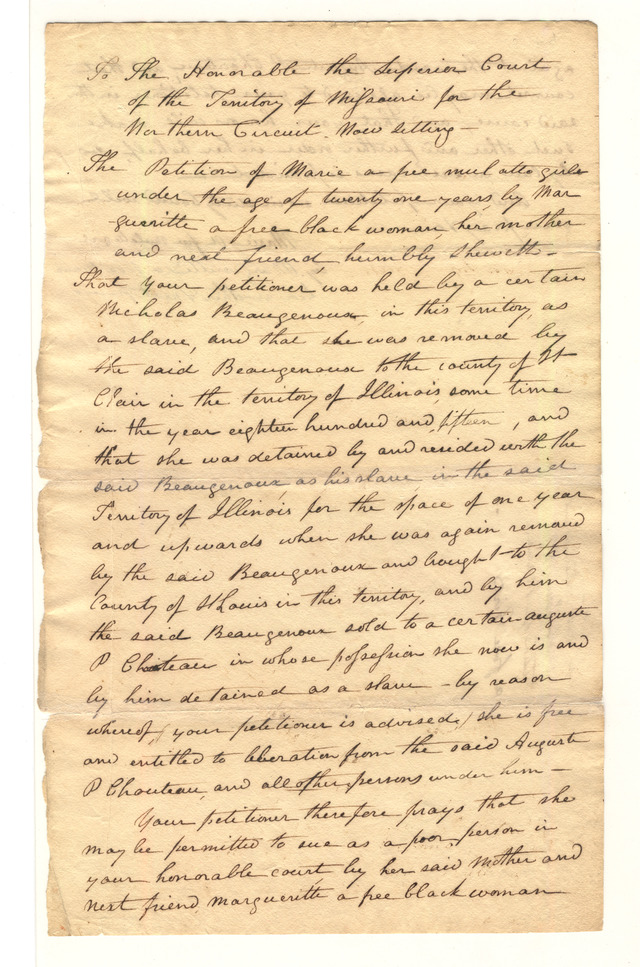 To The Honorable the Superior Court
of the Territory of Missouri for the
Northern Circuit. Now sitting —
The Petition of Marie a free mulatto girl
under the age of twenty one years by Mar
gueritte a free black woman, her mother
and next friend, humbly sheweth —
That your petitioner was held by a certain
Nicholas Beaugenoux, in this territory, as
a slave, and that she was removed by
the said Beaugenoux to the county of St
Clair in the territory of Illinois, some time
in the year eighteen hundred and fifteen, and
that she was detained by and resided with the
said Beaugenoux as his slave in the said
Territory of Illinois for the space of one year
and upwards when she was again removed
by the said Beaugenoux and brought to the
County of St Louis in this territory, and by him
the said Beaugenoux sold to a certain auguste
P Choteau in whose possession she now is and
by him detained as a slave — by reason
whereof, (your petitioner is advised,) she is free
and entitled to liberation from the said Auguste
P Chouteau, and all other persons under him —
Your petitioner therefore prays that she
may be permitted to sue as a poor person in
your honorable court by her said Mother and
next friend Margueritte a free black woman